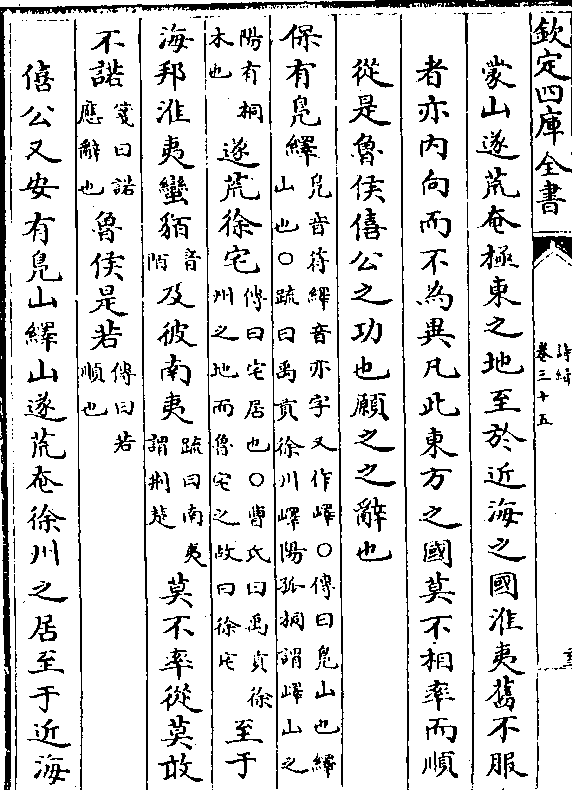 欽定四庫全書
詩緝
卷三十五
蒙山遂荒奄極東之地至於近海之國淮夷舊不服
者亦内向而不為異凡此東方之國莫不相率而順
從是魯侯僖公之功也願之之辭也
保有鳬繹鳬音符繹音亦字又作嶧○傳曰鳬山也繹山也○疏曰禹貢徐州嶧陽孤桐謂嶧山之
陽有桐木也遂荒徐宅傳曰宅居也○曹氏曰禹貢徐州之地而魯宅之故曰徐宅至于
海邦淮夷蠻貊音陌及彼南夷疏曰南夷謂荆楚莫不率從莫敢
不諾箋曰諾應辭也魯侯是若傳曰若順也
僖公又安有鳬山繹山遂荒奄徐州之居至于近海